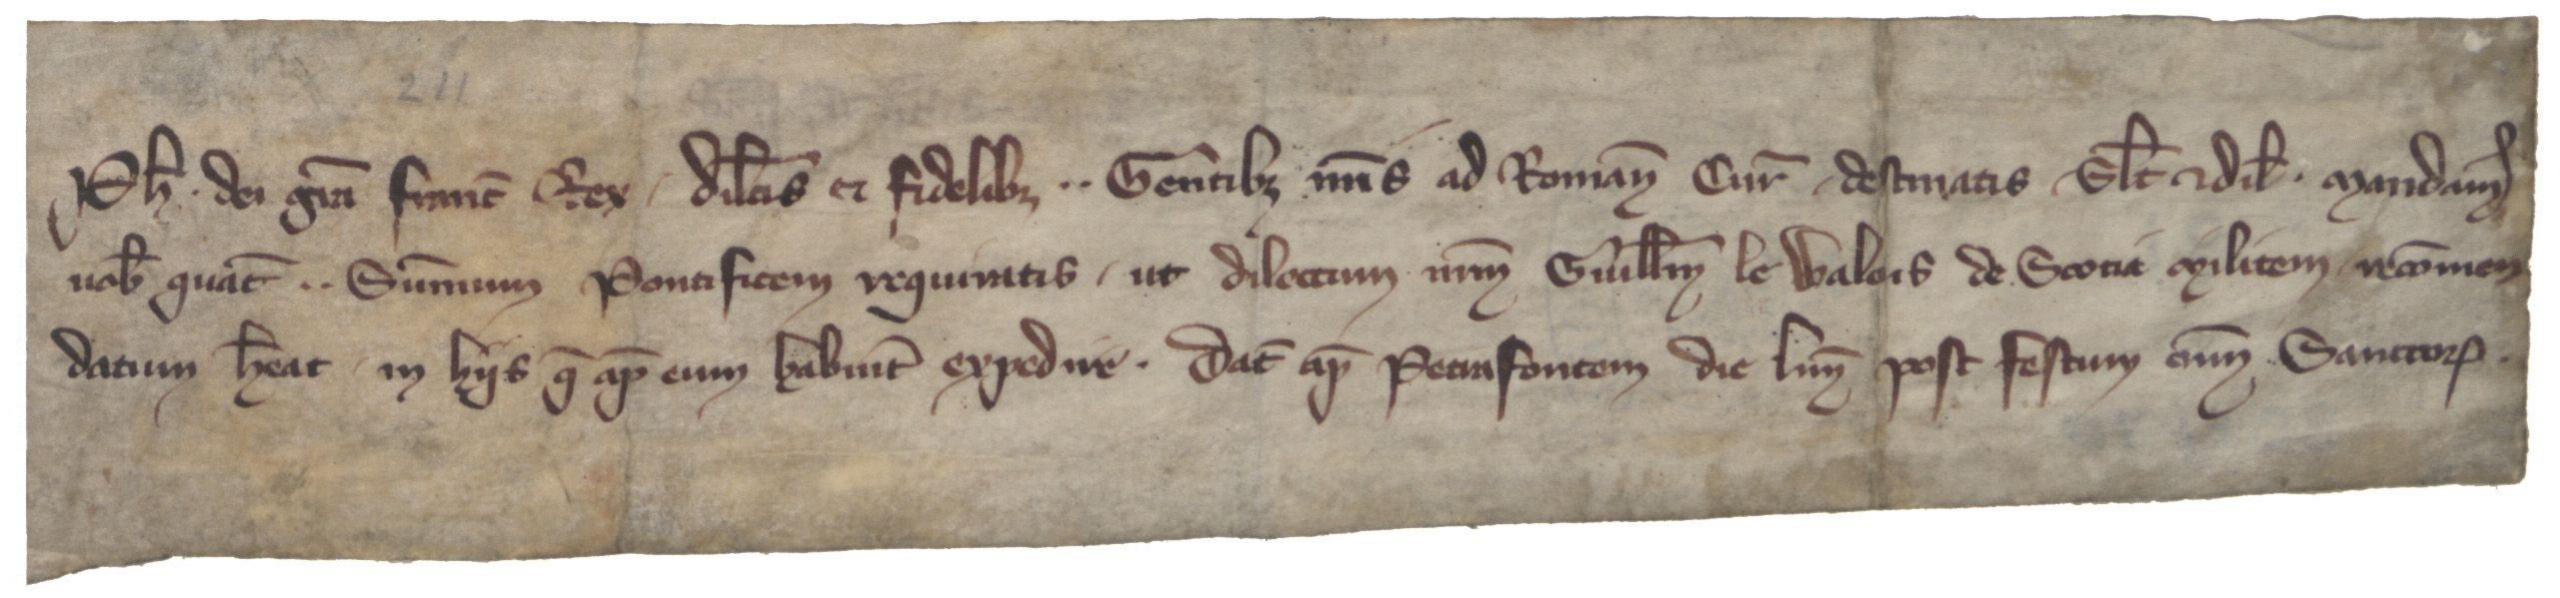 211
Ph̃. dei gr̃a franc̃ Rex, dil̃cis et fidelibꝫ .. Gẽntibꝫ nr̃is ad Romañ Cur̃ destinatis Sl̃t ⁊ dil̃. Mandamꝰ
uob̃ quat̃ .. Sum̃um Pontificem requiratis, ut dilectum nr̃m Guill̃m le Walois de Scotia Militem, recõmen
datum h̃eat, in hijs q̃ ap̃ eum habuit̃ expedire. Dat̃ ap̃ Petrafontem die lun̄ post festum om̄ Sanctorꝝ.